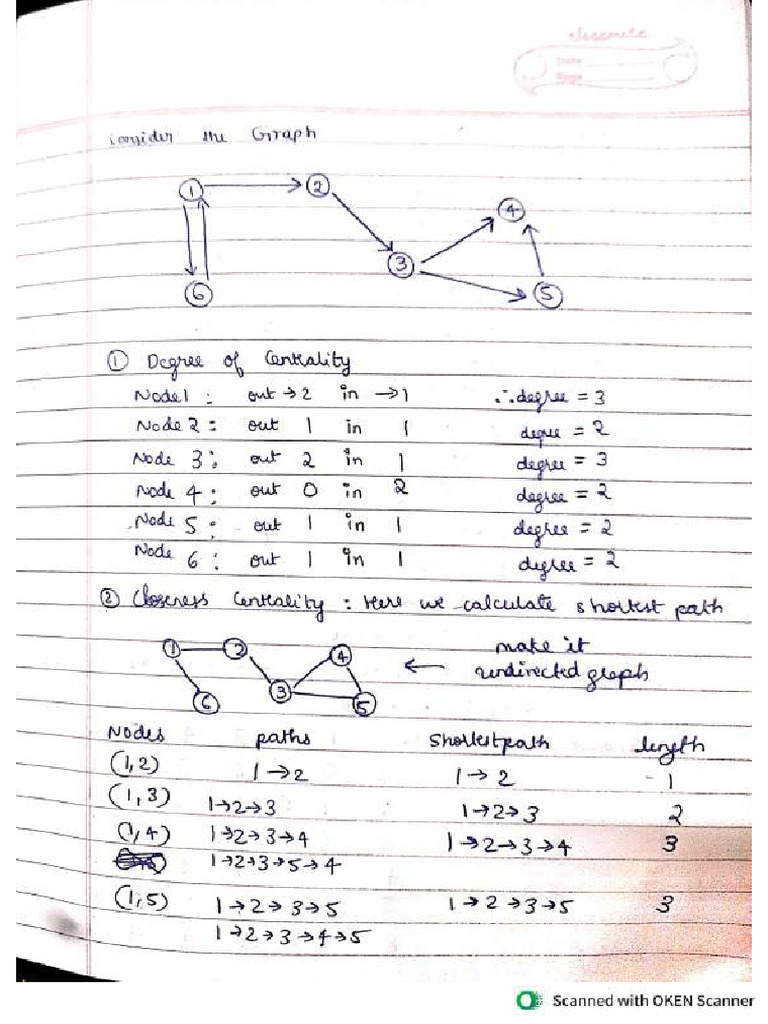 Consider the Graph
1 2 4
3
6 5
① Degree of Centrality
Node1 : out → 2 in → 1 ∴ degree = 3
Node 2 : out 1 in 1 degree = 2
Node 3 : out 2 in 1 degree = 3
Node 4 : out 0 in 2 degree = 2
Node 5 : out 1 in 1 degree = 2
Node 6 : out 1 in 1 degree = 2
② Closeness Centrality : Here we calculate shortest path
1 2 4 ← make it
6 3 5 undirected graph
Nodes paths Shortest path length
(1,2) 1→2 1→2 1
(1,3) 1→2→3 1→2→3 2
(1,4) 1→2→3→4 1→2→3→4 3
1→2→3→5→4
(1,5) 1→2→3→5 1→2→3→5 3
1→2→3→4→5
Scanned with OKEN Scanner